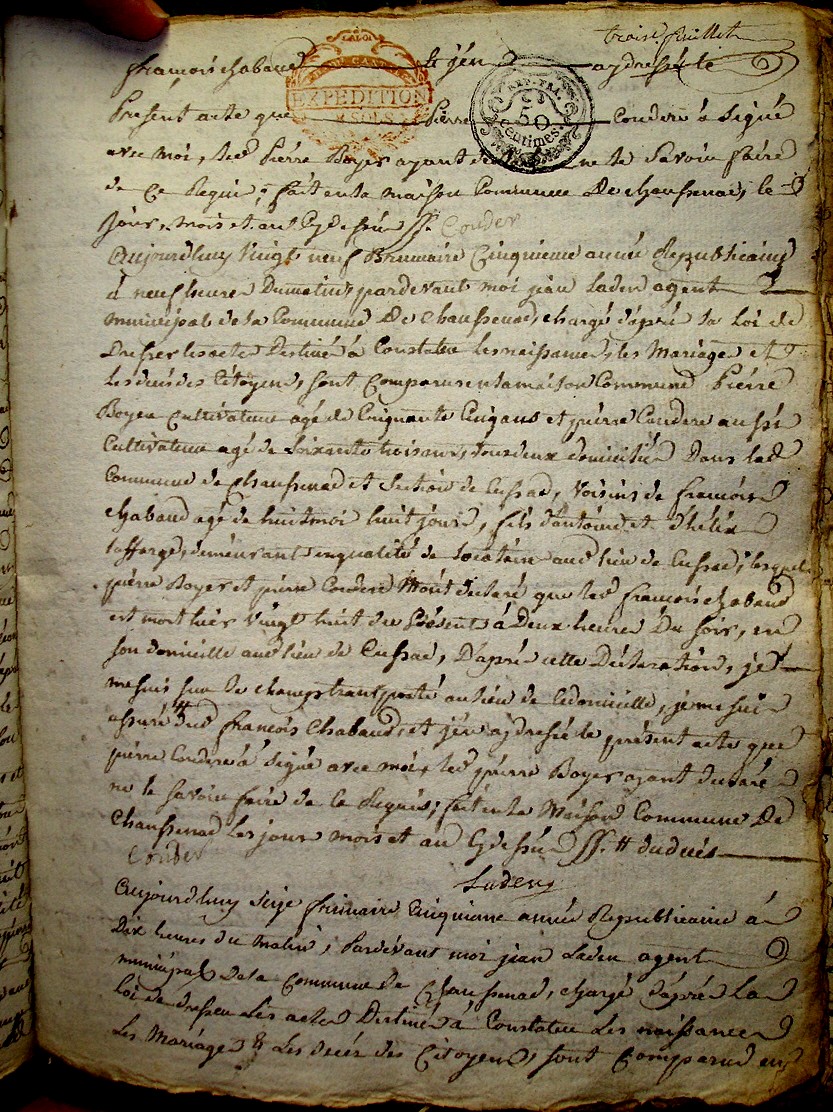 troise. fuillet
françois chabaud j'en ay dressé le
Present acte que Pierre Couderc à Signé
avec moi, led. Pierre Boyer ayant de ne le Savoir faire
de Ce Requis; fait en la maison Commune De chaussenac, le
jour, mois et an Cy dessus Couderc
LA LOI
EXPEDITION
5 SOLS
50
Centimes.
Aujourdhuy Vingt neuf Brumaire Cinquieme année Republicaine
à neuf heures Dumatin, pardevant moi jean Laden agent
municipal de la Commune De Chaussenac, chargé d'après la Loi de
Dresser les actes Destiné à Constater les naissances, les Mariage et
les décès des Citoyens, sont Comparus en la maison Commune Pierre
Boyer Cultivateur agé de Cinquante Cinq ans et pierre Couderc aussi
Cultivateur agé de Soixante trois ans, tous deux domicilié Dans lad.
Commune de Chaussenac et Section de Cussac, Voisins de françois
Chabaud agé de huit moi huit jours, fils d'antoine et d'hélix
laffarge, demeurant en qualité de Locataire aud. lieu de Cussac; lesquels
pierre Boyer et pierre Couderc M'ont declaré que led. françois chabaud
est mort hier Vingt huit du Présent à Deux heures Du Soir, en
son domicille aud. lieu de Cussac, D'après cette Déclaration, je
me suis sur le champs transporté au lieu de ce domicille, je me suis
assuré # dud. françois Chabaud, et j'en ay dressé le présent acte que
pierre Couderc à Signé avec moi, led. pierre Boyer ayant declaré
ne le Savoir faire de Ce Requis; fait en la Maison Commune De
Chaussenac les jour mois et an Cy dessus # du décès
Couder
Ladens
Aujourdhuy Seize frimaire Cinquieme année Republicaine à
Dix heures du Matin, Pardevant moi jean Laden agent
municipal De la Commune De Chaussenac, chargé d'après La
Loi de dresser Les actes Destiné à Constater Les naissances
Les Mariages & Les décès des Citoyens, sont Comparus en